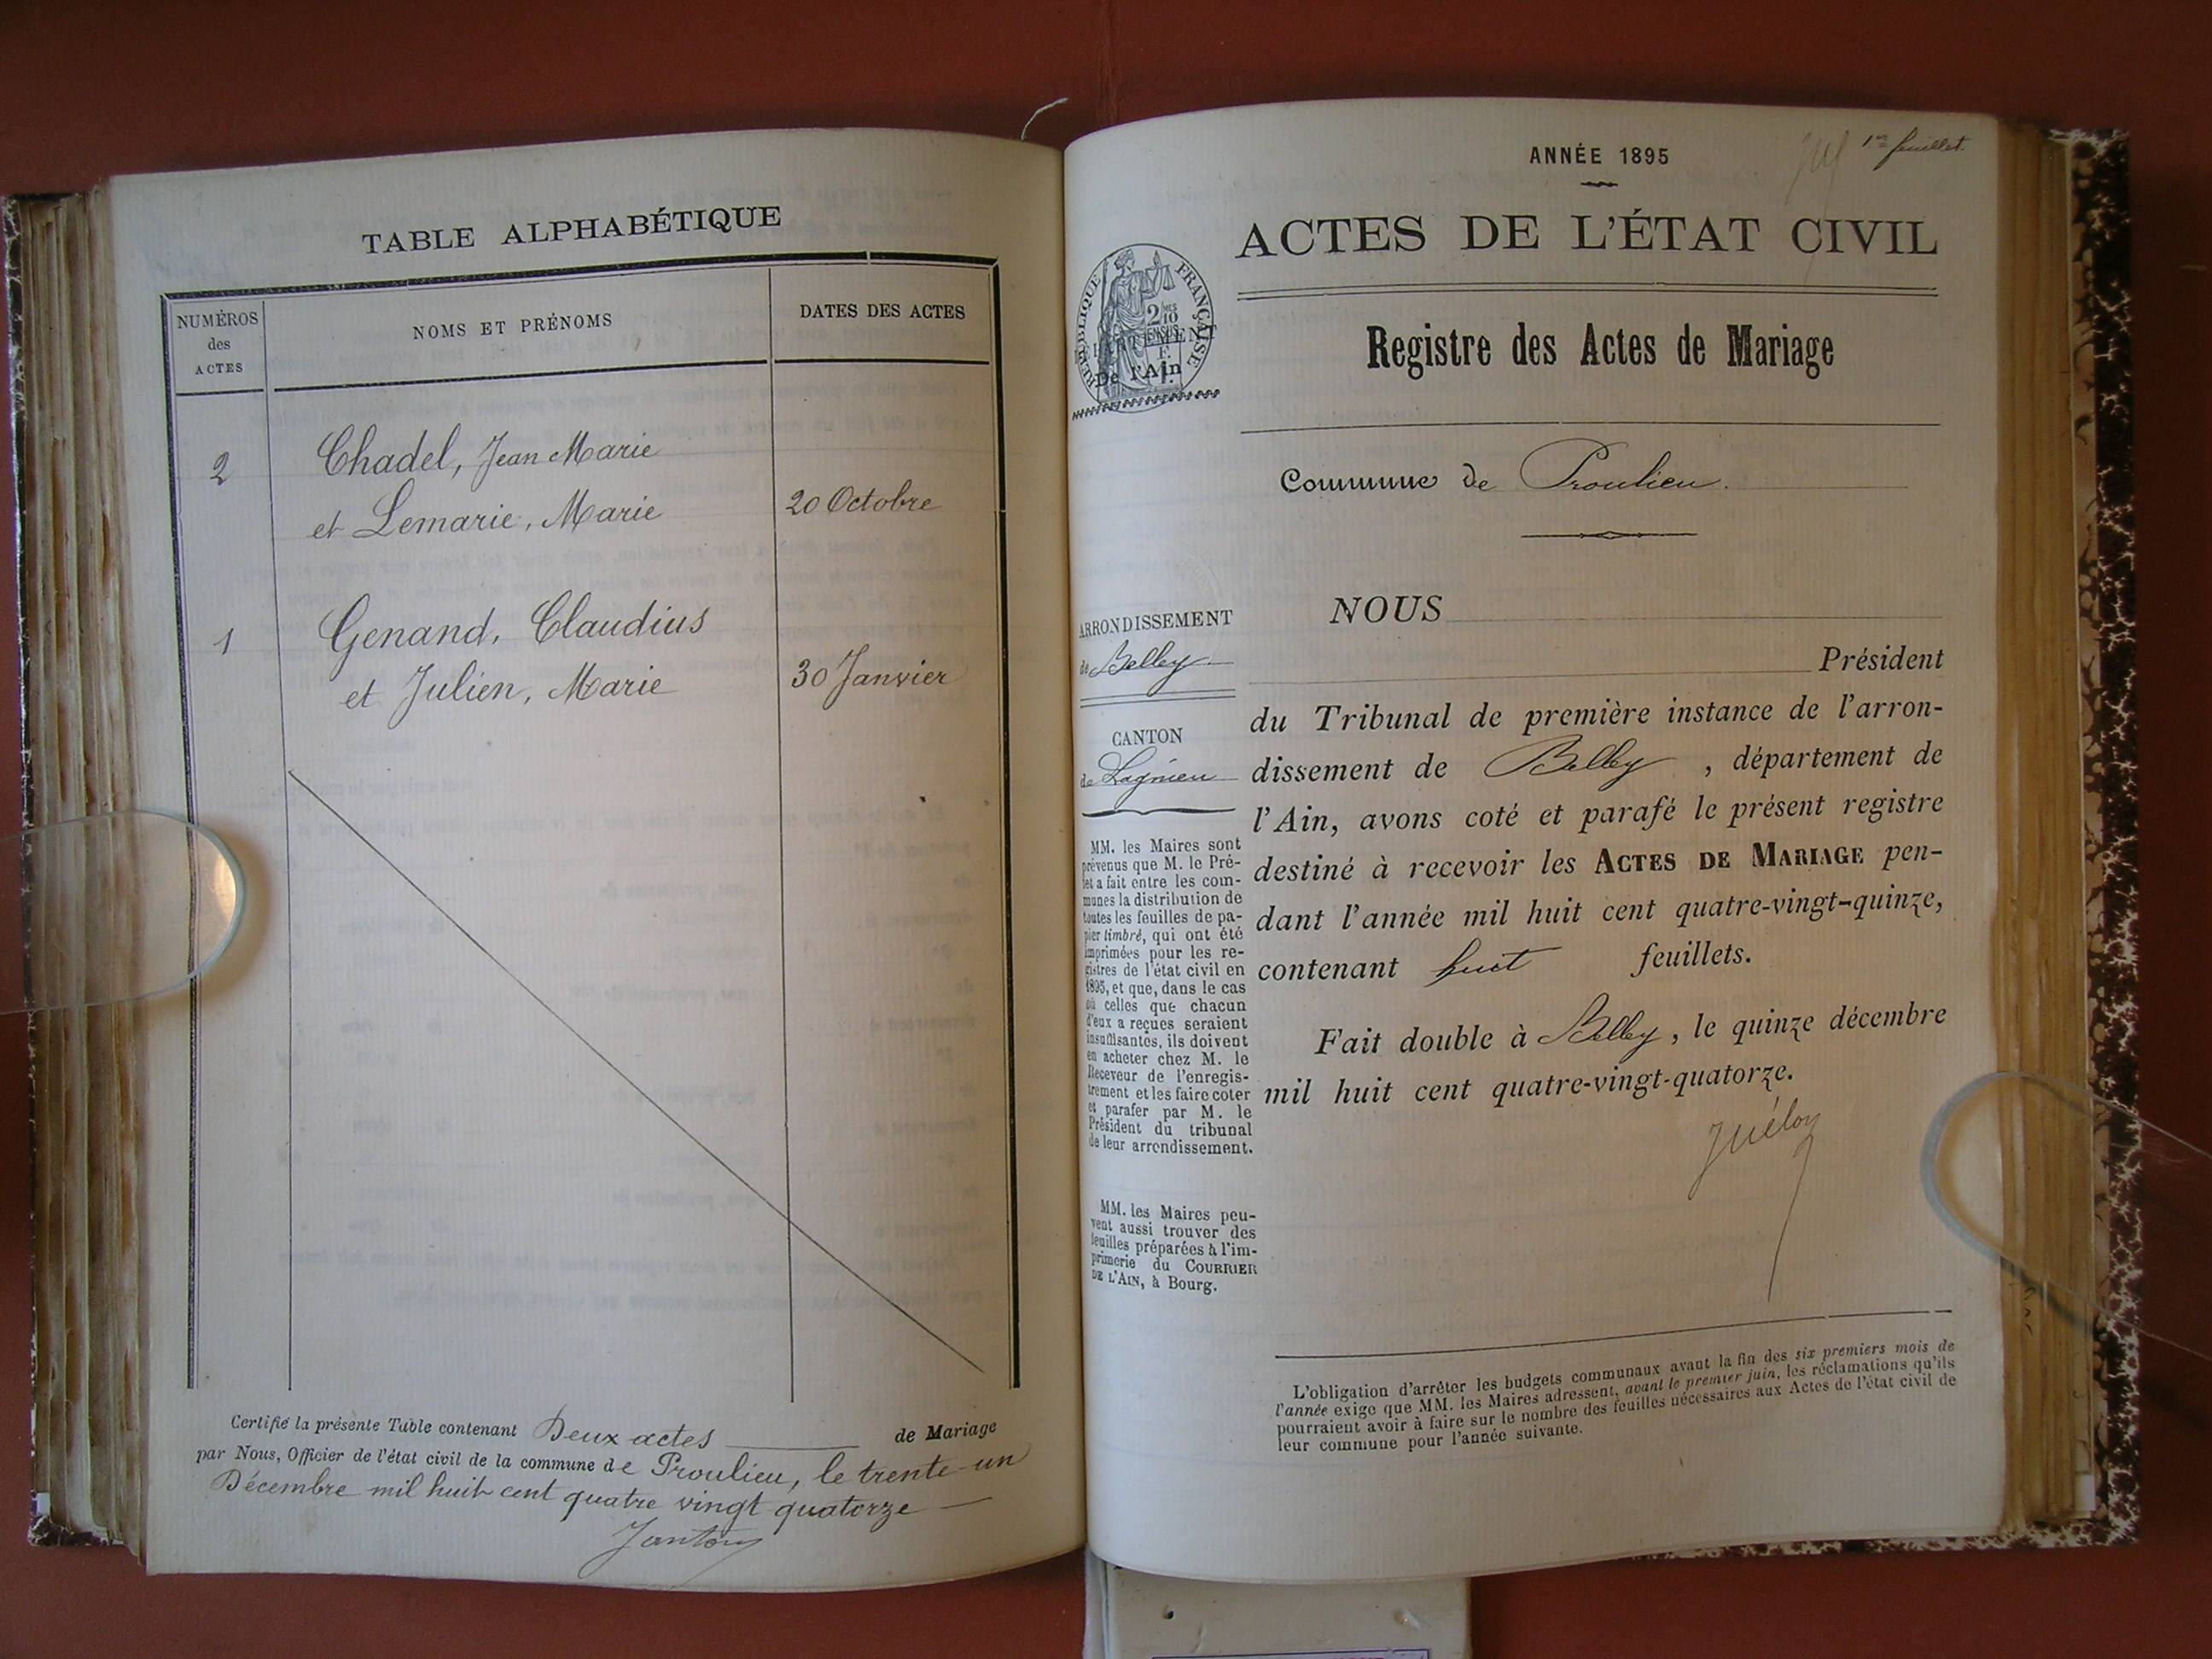 TABLE ALPHABÉTIQUE
NUMÉROS
des
ACTES
NOMS ET PRÉNOMS
DATES DES ACTES
2
Chadel, Jean Marie
et Lemarie, Marie
20 Octobre
1
Genand, Claudius
et Julien, Marie
30 Janvier
Certifié la présente Table contenant Deux actes de Mariage
par Nous, Officier de l'état civil de la commune de Proulieu, le trente-un
Décembre mil huit cent quatre vingt quatorze
Janton
1er feuillet.
ANNÉE 1895
ACTES DE L'ÉTAT CIVIL
RÉPUBLIQUE FRANÇAISE
De l'Ain
Registre des Actes de Mariage
Commune de Proulieu.
ARRONDISSEMENT
de Belley
CANTON
de Lagnieu
MM. les Maires sont
prévenus que M. le Pré-
fet a fait entre les com-
munes la distribution de
toutes les feuilles de pa-
pier timbré, qui ont été
imprimées pour les re-
gistres de l'état civil en
1895, et que, dans le cas
où celles que chacun
d'eux a reçues seraient
insuffisantes, ils doivent
en acheter chez M. le
Receveur de l'enregis-
trement et les faire coter
et parafer par M. le
Président du tribunal
de leur arrondissement.
MM. les Maires peu-
vent aussi trouver des
feuilles préparées à l'im-
primerie du COURRIER
DE L'AIN, à Bourg.
NOUS
Président
du Tribunal de première instance de l'arron-
dissement de Belley, département de
l'Ain, avons coté et parafé le présent registre
destiné à recevoir les ACTES DE MARIAGE pen-
dant l'année mil huit cent quatre-vingt-quinze,
contenant huit feuillets.
Fait double à Belley, le quinze décembre
mil huit cent quatre-vingt-quatorze.
L'obligation d'arrêter les budgets communaux avant la fin des six premiers mois de
l'année exige que MM. les Maires adressent, avant le premier juin, les réclamations qu'ils
pourraient avoir à faire sur le nombre des feuilles nécessaires aux Actes de l'état civil de
leur commune pour l'année suivante.